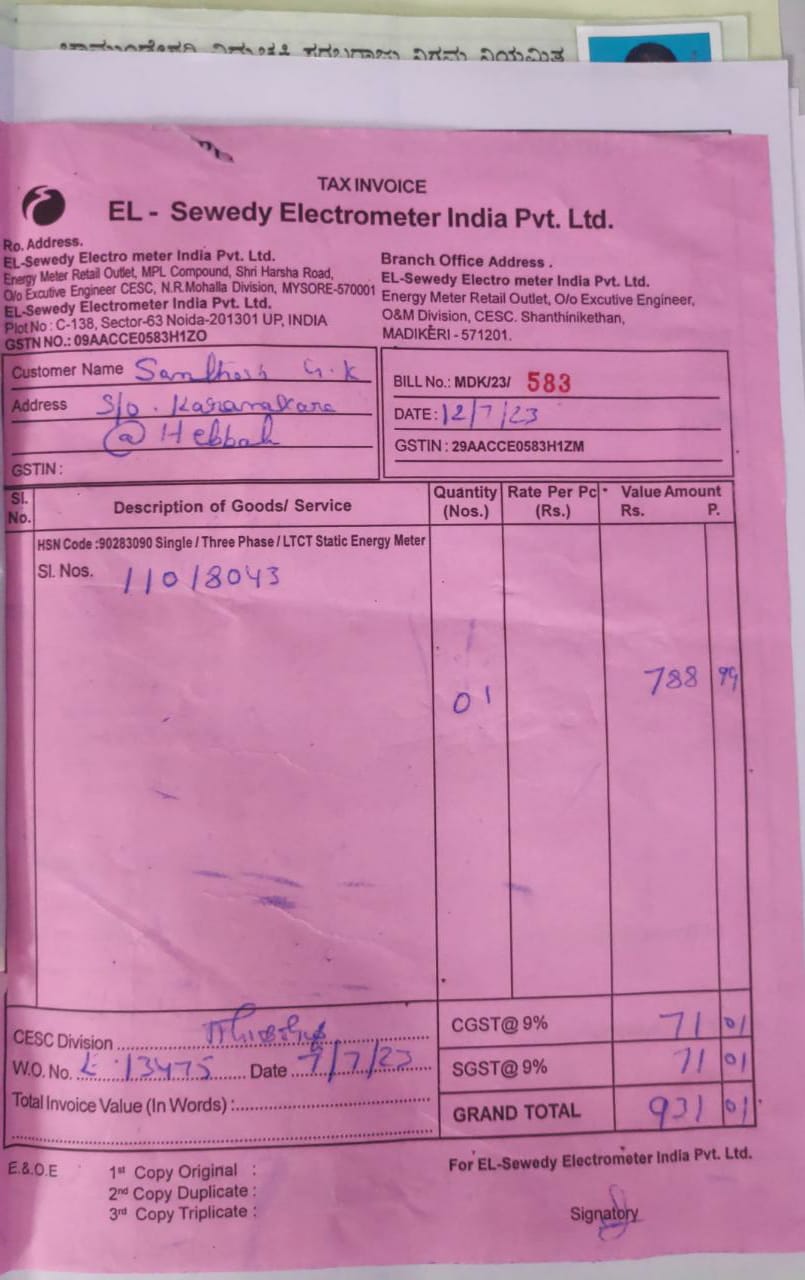 TAX INVOICE
EL - Sewedy Electrometer India Pvt. Ltd.
Ro. Address.
EL-Sewedy Electro meter India Pvt. Ltd.
Energy Meter Retail Outlet, MPL Compound, Shri Harsha Road,
O/o Excutive Engineer CESC, N.R.Mohalla Division, MYSORE-570001
EL-Sewedy Electrometer India Pvt. Ltd.
Plot No : C-138, Sector-63 Noida-201301 UP, INDIA
GSTN NO.: 09AACCE0583H1ZO
Branch Office Address .
EL-Sewedy Electro meter India Pvt. Ltd.
Energy Meter Retail Outlet, O/o Excutive Engineer,
O&M Division, CESC. Shanthinikethan,
MADIKERI - 571201.
Customer Name Santhosh G.K
Address S/o.
@ Hebbale
GSTIN :
BILL No.: MDK/23/ 583
DATE: 12/7/23
GSTIN : 29AACCE0583H1ZM
Sl. No. Description of Goods/ Service Quantity (Nos.) Rate Per Pc (Rs.) Value Amount Rs. P.
HSN Code :90283090 Single / Three Phase / LTCT Static Energy Meter
Sl. Nos. 11018043
01 788 99
CESC Division
W.O. No. 13475 Date 7/7/23
Total Invoice Value (In Words) :
CGST@ 9% 71 01
SGST@ 9% 71 01
GRAND TOTAL 931 01
E.&.O.E 1st Copy Original :
2nd Copy Duplicate :
3rd Copy Triplicate :
For EL-Sewedy Electrometer India Pvt. Ltd.
Signatory